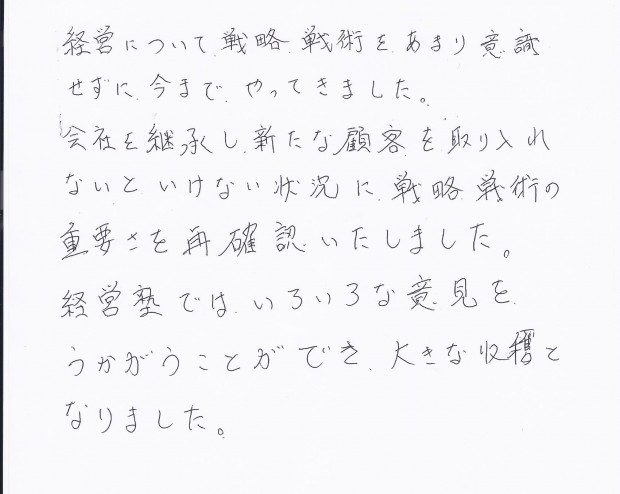 経営について、戦略、戦術をあまり意識
せずに、今まで、やってきました。
会社を継承し、新たな顧客を取り入れ
ないといけない状況に、戦略、戦術の
重要さを再確認いたしました。
経営塾では、いろいろな意見を、
うかがうことができ、大きな収穫と
なりました。